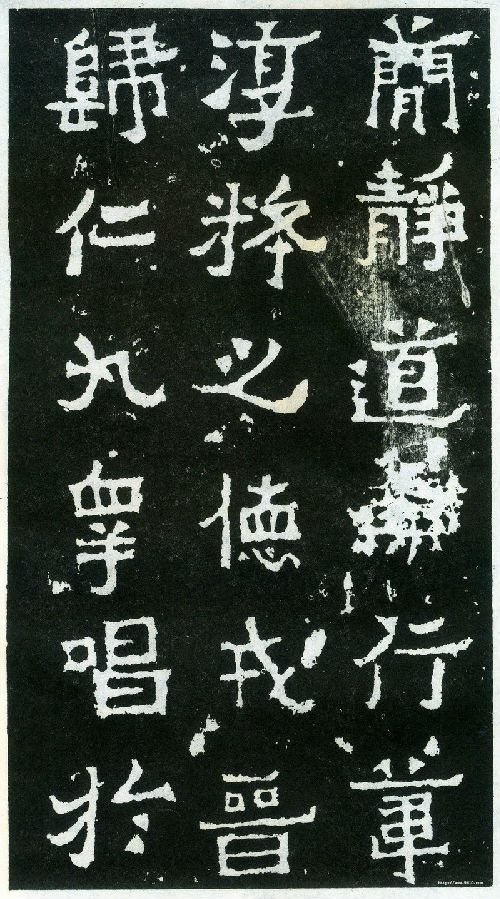 簡靜道兼行葦
淳粹之德戎晉
歸仁九皐唱於